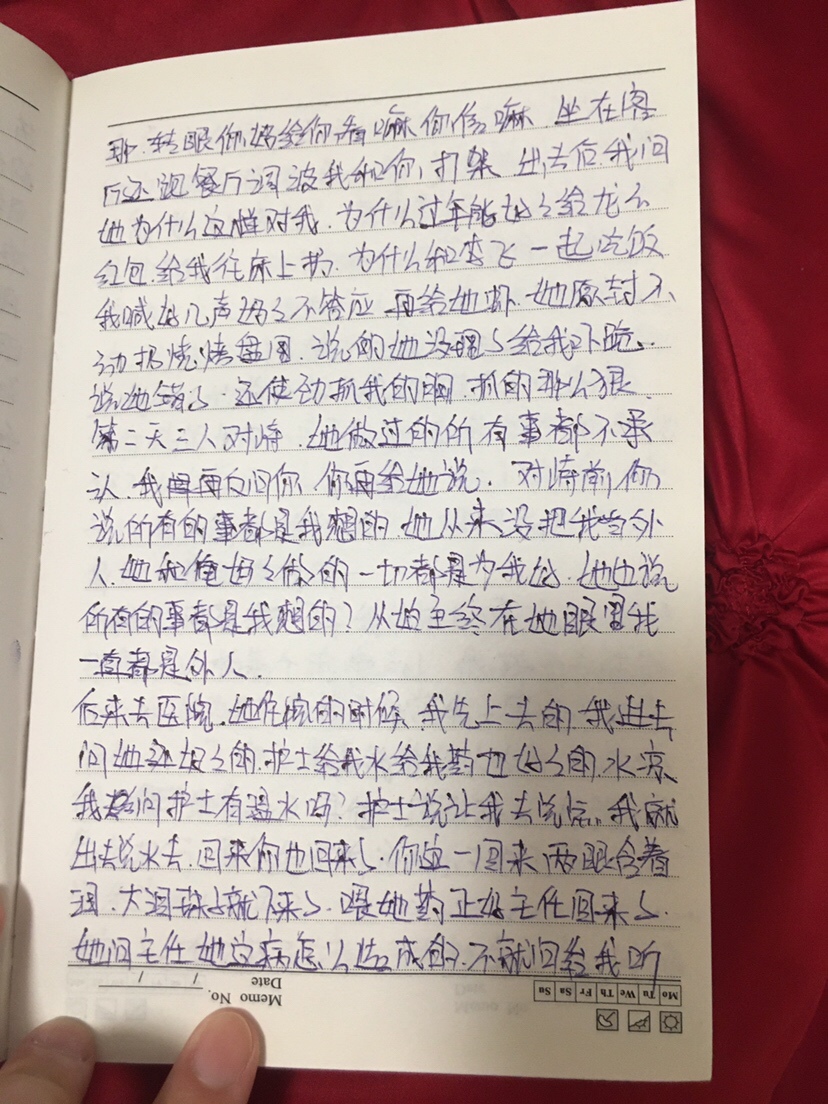 那.转眼你妈给你看嘛你信嘛.坐在客
厅还说餐厅调波我和你打架 出去后我问
她为什么这样对我.为什么过年能好好给龙龙
红包.给我往床上扔.为什么和李飞一起吃饭
我喊好几声妈妈不答应 再给她虾.她原封不
动扔烧烤盘里.说的她没理了给我下跪.
说她错了.还使劲抓我的胸.抓的那么狠.
第二天三人对峙.她做过的所有事都不承
认.我再问你 你再给她说.对峙前,你
说所有的事都是我想的.她从来没把我当外
人.她和俺妈妈做的一切都是为我好.她也说
所有的事都是我想的?从始至终在她眼里我
一直都是外人.
后来去医院.她住院的时候.我先上去的 我进去
问她还好好的.护士给我水给我药也好好的.水凉
我问护士有温水吗?护士说让我去洗点.我就
出去说水去.回来你也回来了.你这一回来两眼含着
泪.大泪珠子就下来了.喂她药正好主任回来了.
她问主任她这病怎么造成的.不就问给我听
Memo No.
Date
Mo Tu We Th Fr Sa Su